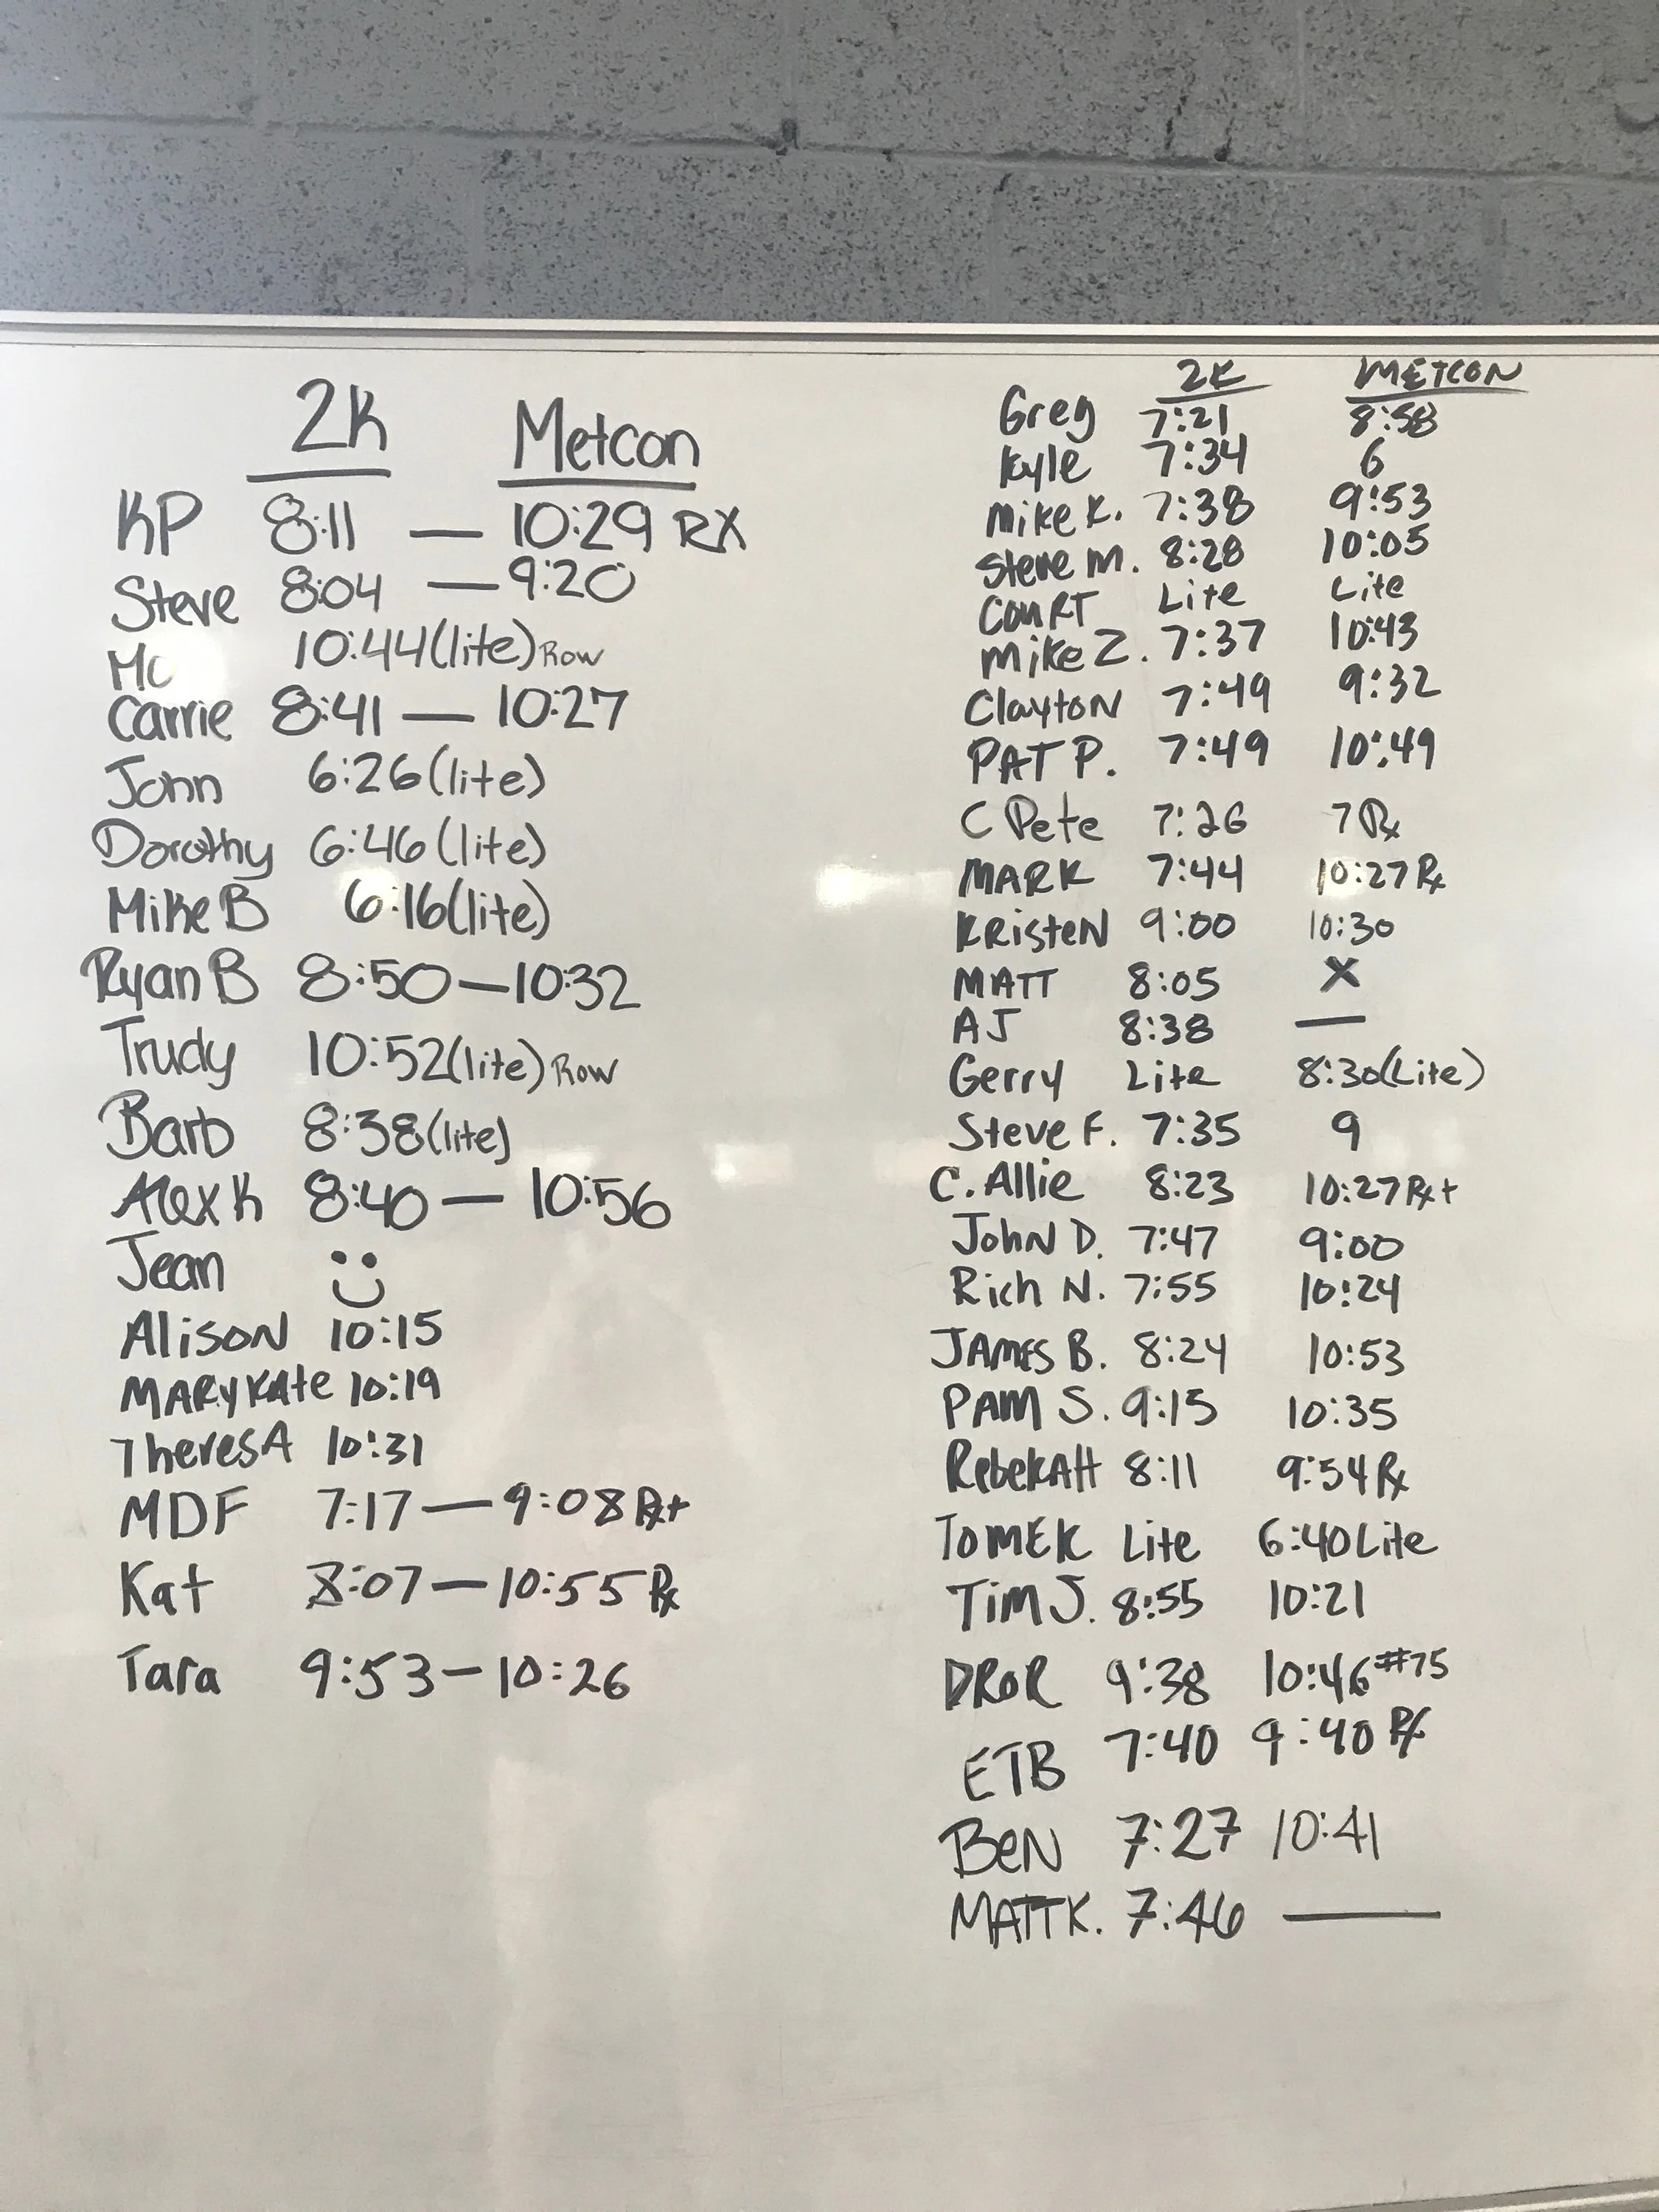 2K Metcon
KP 8:11 — 10:29 RX
Steve 8:04 — 9:20
Mo 10:44(lite) Row
Carrie 8:41 — 10:27
John 6:26(lite)
Dorothy 6:46(lite)
Mike B 6:16(lite)
Ryan B 8:50 — 10:32
Trudy 10:52(lite) Row
Barb 8:38(lite)
Alex K 8:40 — 10:56
Jean
Alison 10:15
MARyKAte 10:19
TheresA 10:31
MDF 7:17 — 9:08 Rx+
Kat 8:07 — 10:55 Rx
Tara 9:53 — 10:26
2K METCON
Greg 7:21 8:58
Kyle 7:34 6
Mike K. 7:38 9:53
Steve M. 8:28 10:05
COURT Lite Lite
Mike Z. 7:37 10:43
Clayton 7:49 9:32
PAT P. 7:49 10:49
C Pete 7:26 7 Rx
MARK 7:44 10:27 Rx
KRisteN 9:00 10:30
MATT 8:05 X
AJ 8:38 —
Gerry Lite 8:30(Lite)
Steve F. 7:35 9
C. Allie 8:23 10:27 Rx+
John D. 7:47 9:00
Rich N. 7:55 10:24
JAMES B. 8:24 10:53
PAM S. 9:15 10:35
RebekAH 8:11 9:54 Rx
TOMEK Lite 6:40 Lite
Tim J. 8:55 10:21
DROR 9:38 10:46 #75
ETB 7:40 9:40 Rx
BeN 7:27 10:41
MATT K. 7:46 —